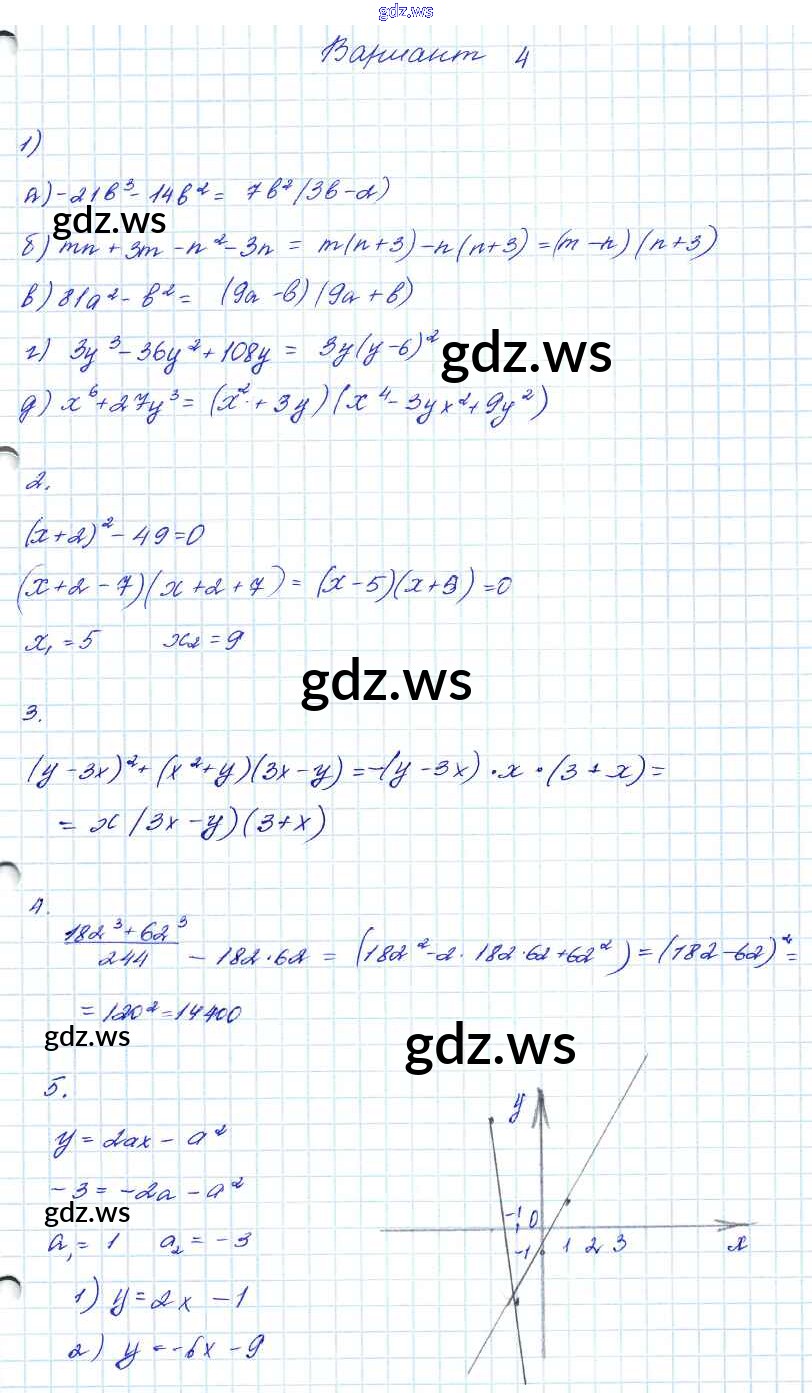 gdz.ws
Вариант 4
1)
а) -21b³ - 14b² = 7b²(3b-2)
gdz.ws
б) mn + 3m - n² - 3n = m(n+3) - n(n+3) = (m-n)(n+3)
в) 81a² - b² = (9a-b)(9a+b)
г) 3y³ - 36y² + 108y = 3y(y-6)²
gdz.ws
д) x⁶ + 27y³ = (x² + 3y)(x⁴ - 3yx² + 9y²)
2.
(x+2)² - 49 = 0
(x+2-7)(x+2+7) = (x-5)(x+9) = 0
x₁ = 5 x₂ = 9
gdz.ws
3.
(y-3x)² + (x²+y)(3x-y) = -(y-3x)·x·(3+x) =
= x(3x-y)(3+x)
4.
182³ + 62³
244
- 182·62 = (182² - 2·182·62 + 62²) = (182-62)² =
= 120² = 14400
gdz.ws
gdz.ws
5.
y = 2ax - a²
-3 = -2a - a²
gdz.ws
a₁ = 1 a₂ = -3
1) y = 2x - 1
2) y = -6x - 9
y
-1 0
-1 1 2 3 x